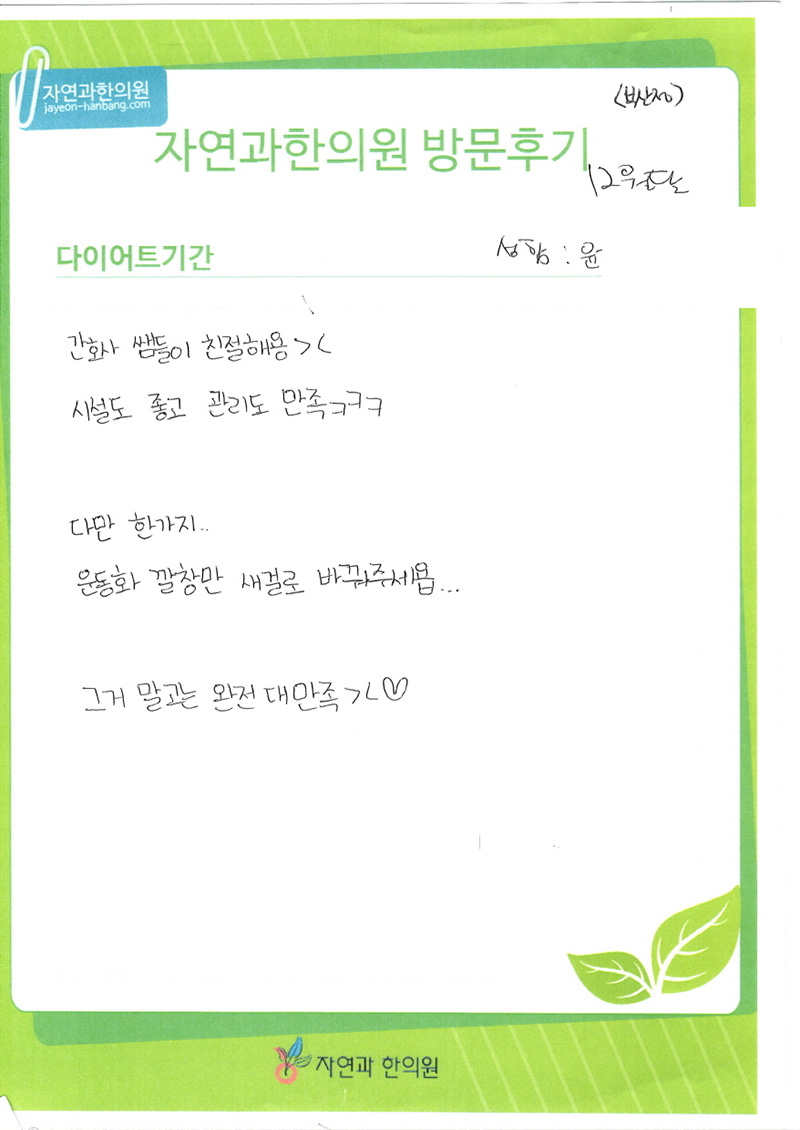 자연과한의원
jayeon-hanbang.com
(부산점)
자연과한의원 방문후기
12우수달
다이어트기간
성함 : 윤
간호사 쌤들이 친절해용><
시설도 좋고 관리도 만족ㅋㅋㅋ
다만 한가지..
운동화 깔창만 새걸로 바꿔주세욥...
그거 말고는 완전 대만족><♡
자연과 한의원